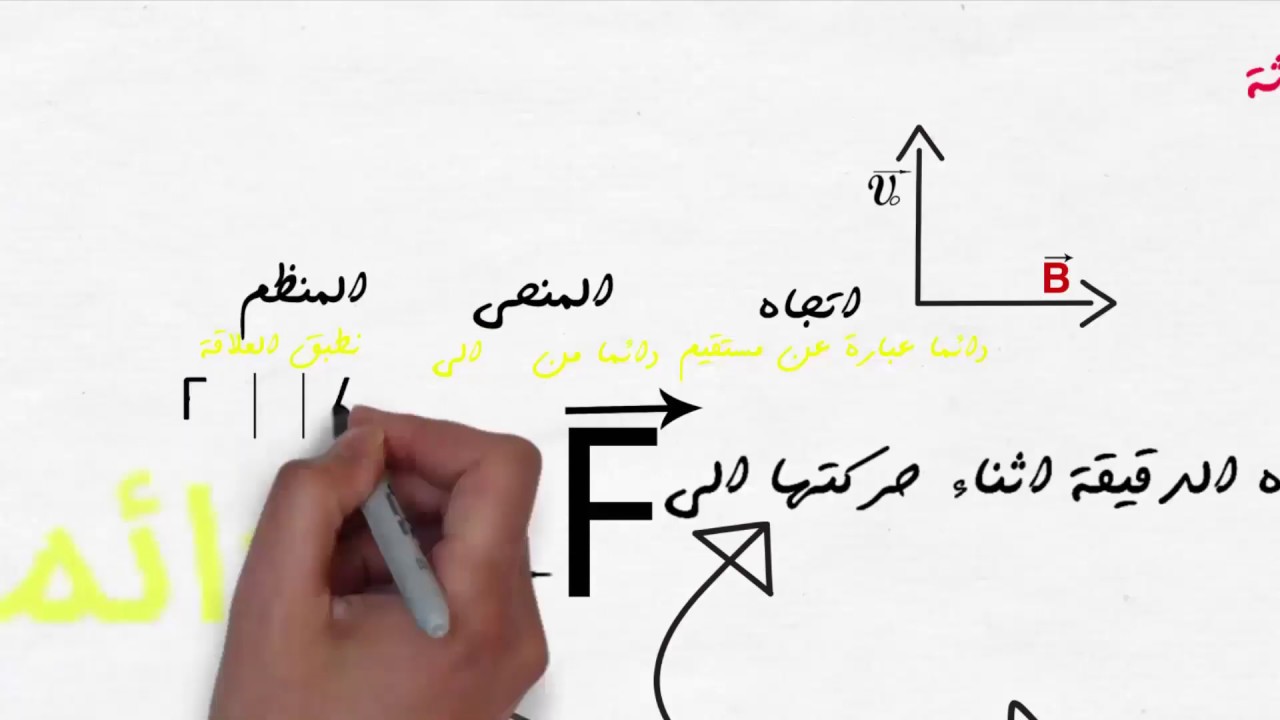 v₀
B
اتجاه المنحى المنظم
دائما عبارة عن مستقيم دائما من الى نطبق العلاقة
F
الدقيقة اثناء حركتها الى